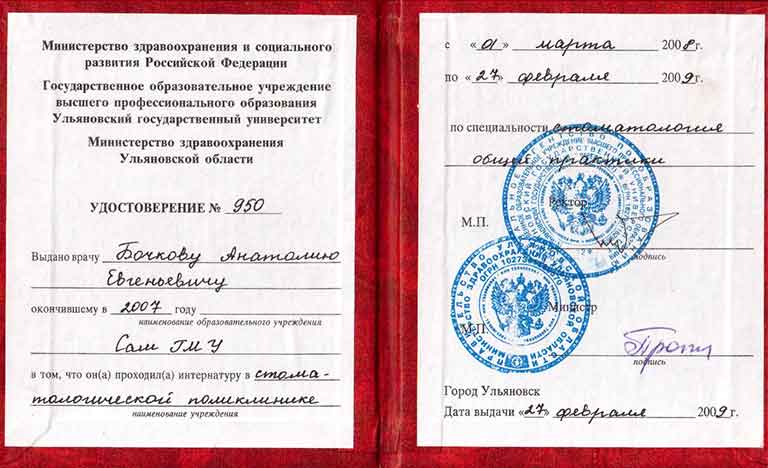 Министерство здравоохранения и социального
развития Российской Федерации
Государственное образовательное учреждение
высшего профессионального образования
Ульяновский государственный университет
Министерство здравоохранения
Ульяновской области
УДОСТОВЕРЕНИЕ № 950
Выдано врачу Бочкову Анатолию
Евгеньевичу
окончившему в 2007 году
наименование образовательного учреждения
Сам ГМУ
в том, что он(а) проходил(а) интернатуру в стома-
тологической поликлинике
наименование учреждения
с «01» марта 2008г.
по «27» февраля 2009г.
по специальности стоматология
общей практики
Ректор
М.П.
подпись
Министр
М.П.
подпись
Город Ульяновск
Дата выдачи «27» февраля 2009г.